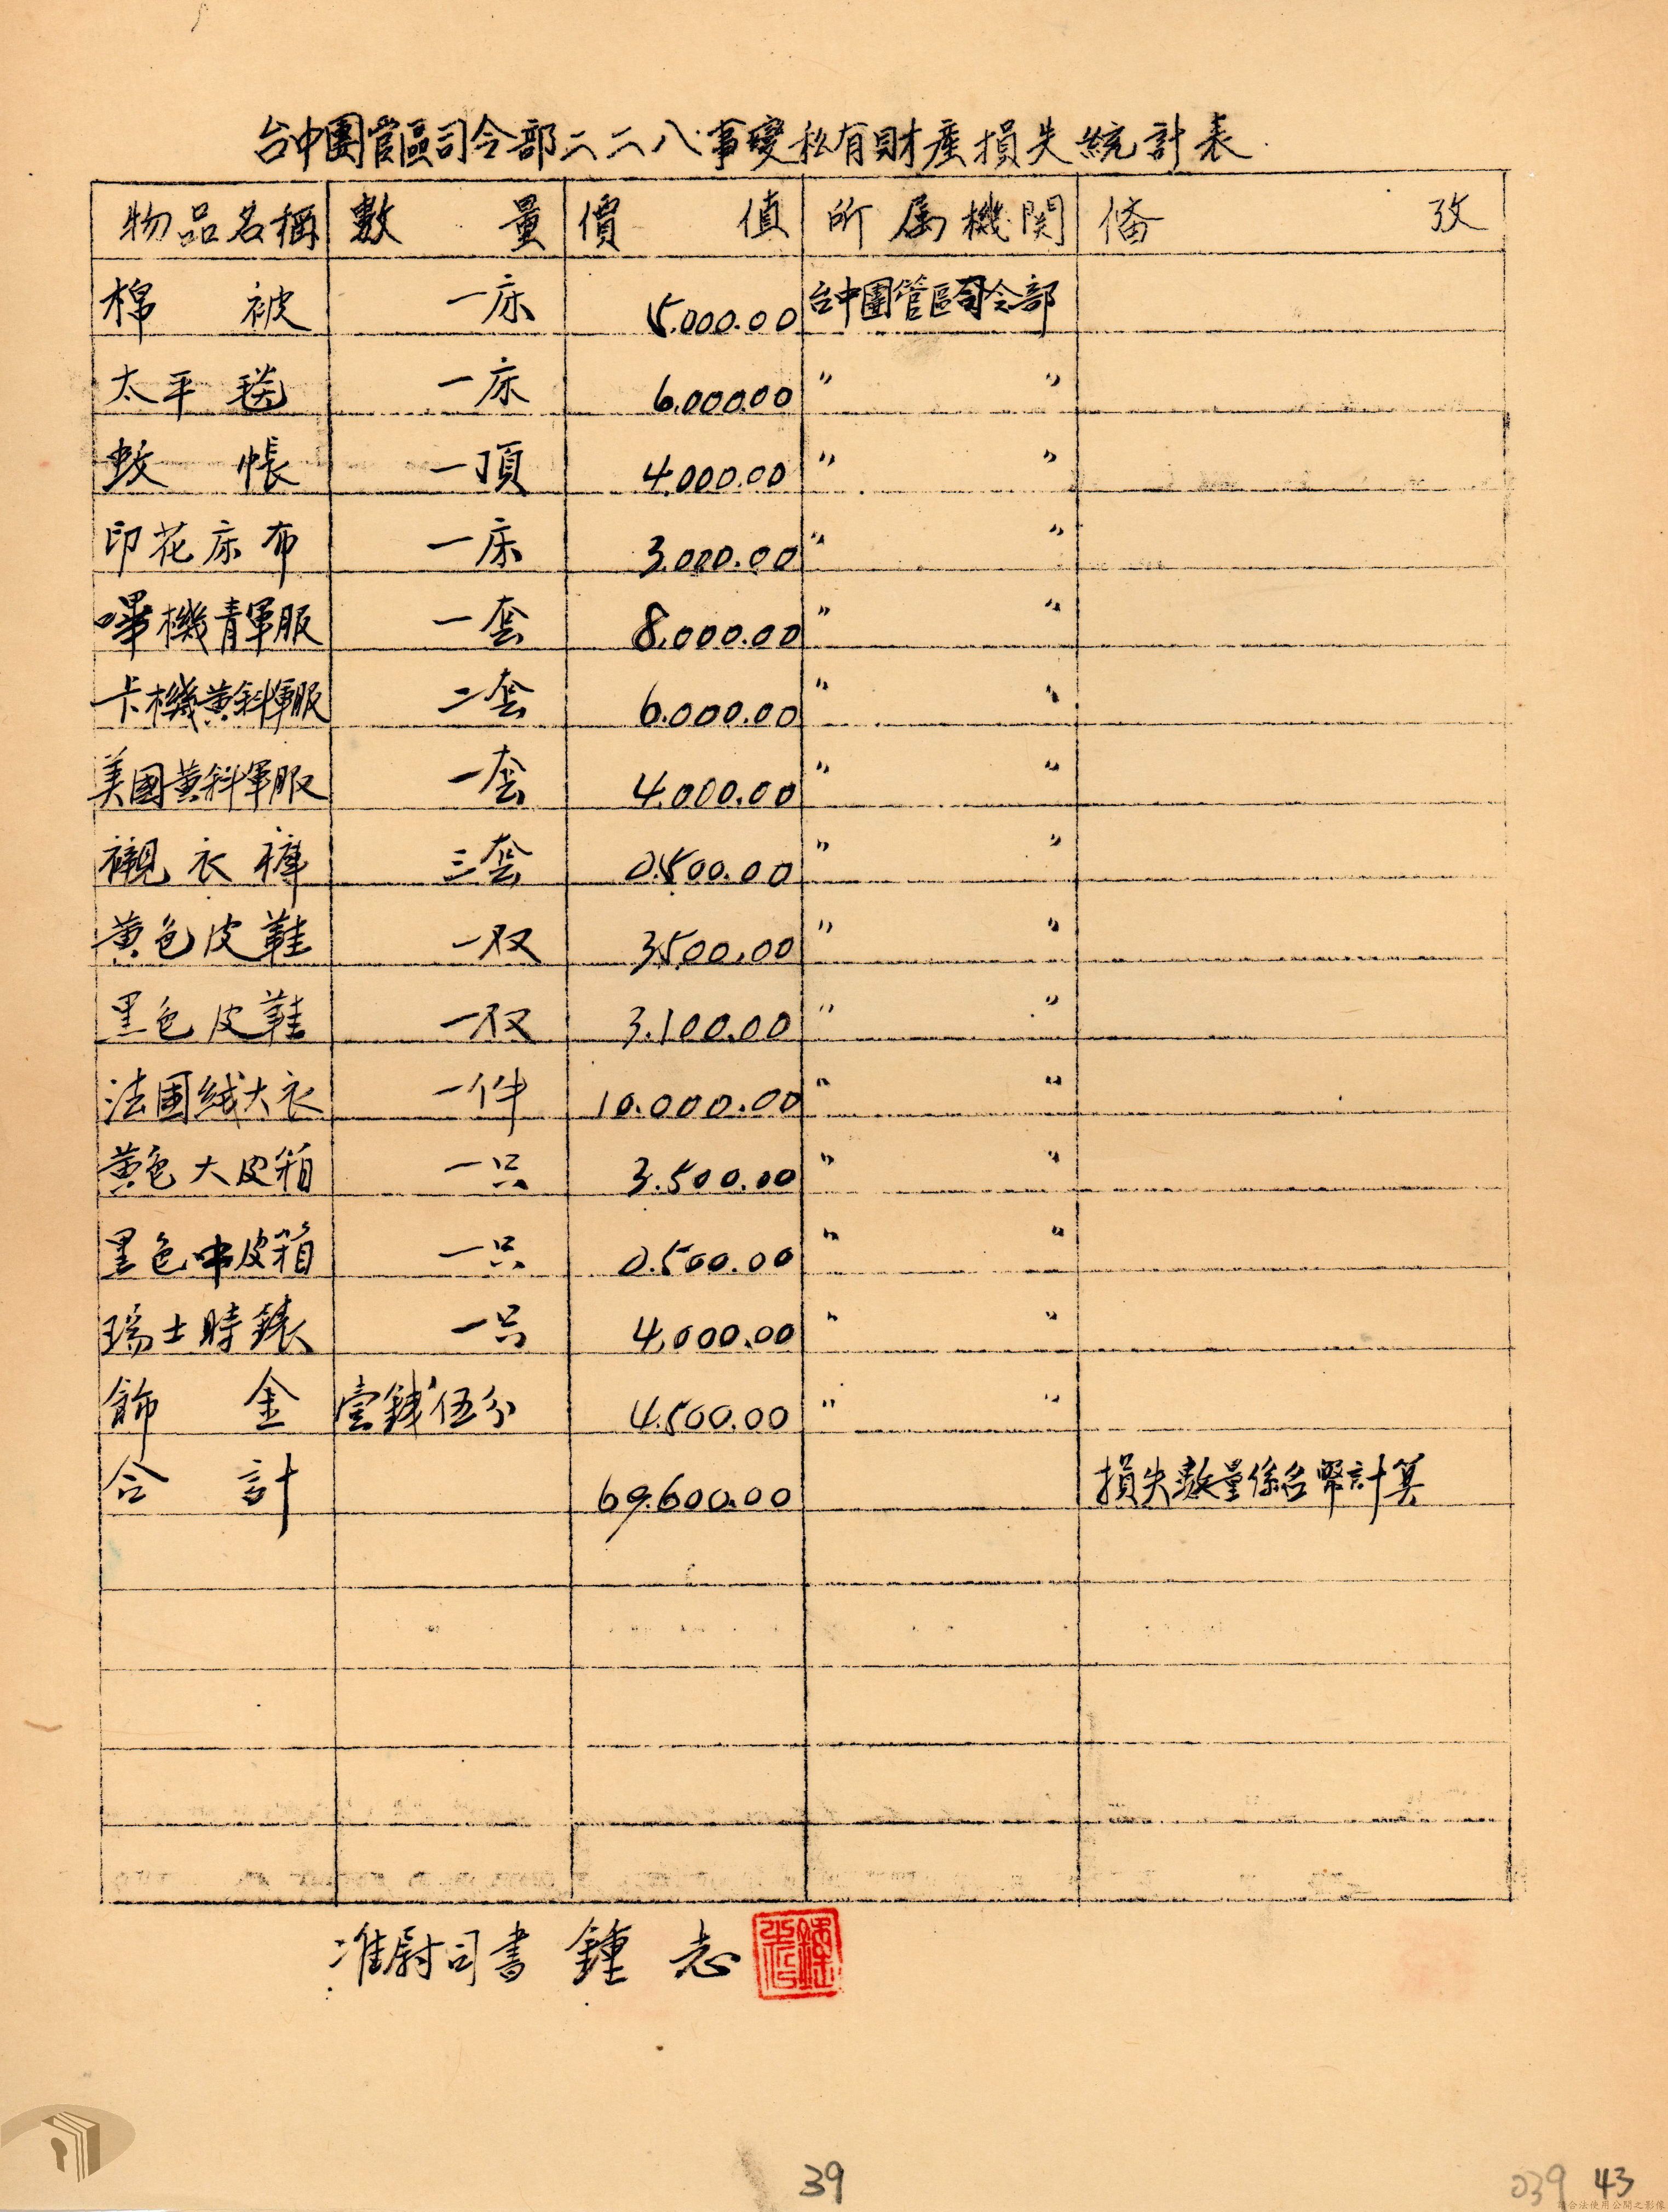 台中團管區司令部二二八事變私有財産損失統計表
物品名稱 數量 價值 所属機関 備攷
棉被 一床 5.000.00 台中團管區司令部
太平毯 一床 6.000.00 〃 〃
蚊帳 一頂 4.000.00 〃 〃
印花床布 一床 3.000.00 〃 〃
嗶機青軍服 一套 8.000.00 〃 〃
卡機黄斜軍服 二套 6.000.00 〃 〃
美國黄斜軍服 一套 4.000.00 〃 〃
襯衣褲 三套 2.500.00 〃 〃
黄色皮鞋 一双 3.500.00 〃 〃
黑色皮鞋 一双 3.100.00 〃 〃
法國絨大衣 一件 10.000.00 〃 〃
黄色大皮箱 一只 3.500.00 〃 〃
黑色中皮箱 一只 2.500.00 〃 〃
瑞士時錶 一只 4.000.00 〃 〃
飾金 壹錢伍分 4.500.00 〃 〃
合計 69.600.00 損失數量係台幣計算
准尉司書 鍾志
39
039 43
請合法使用公開之影像